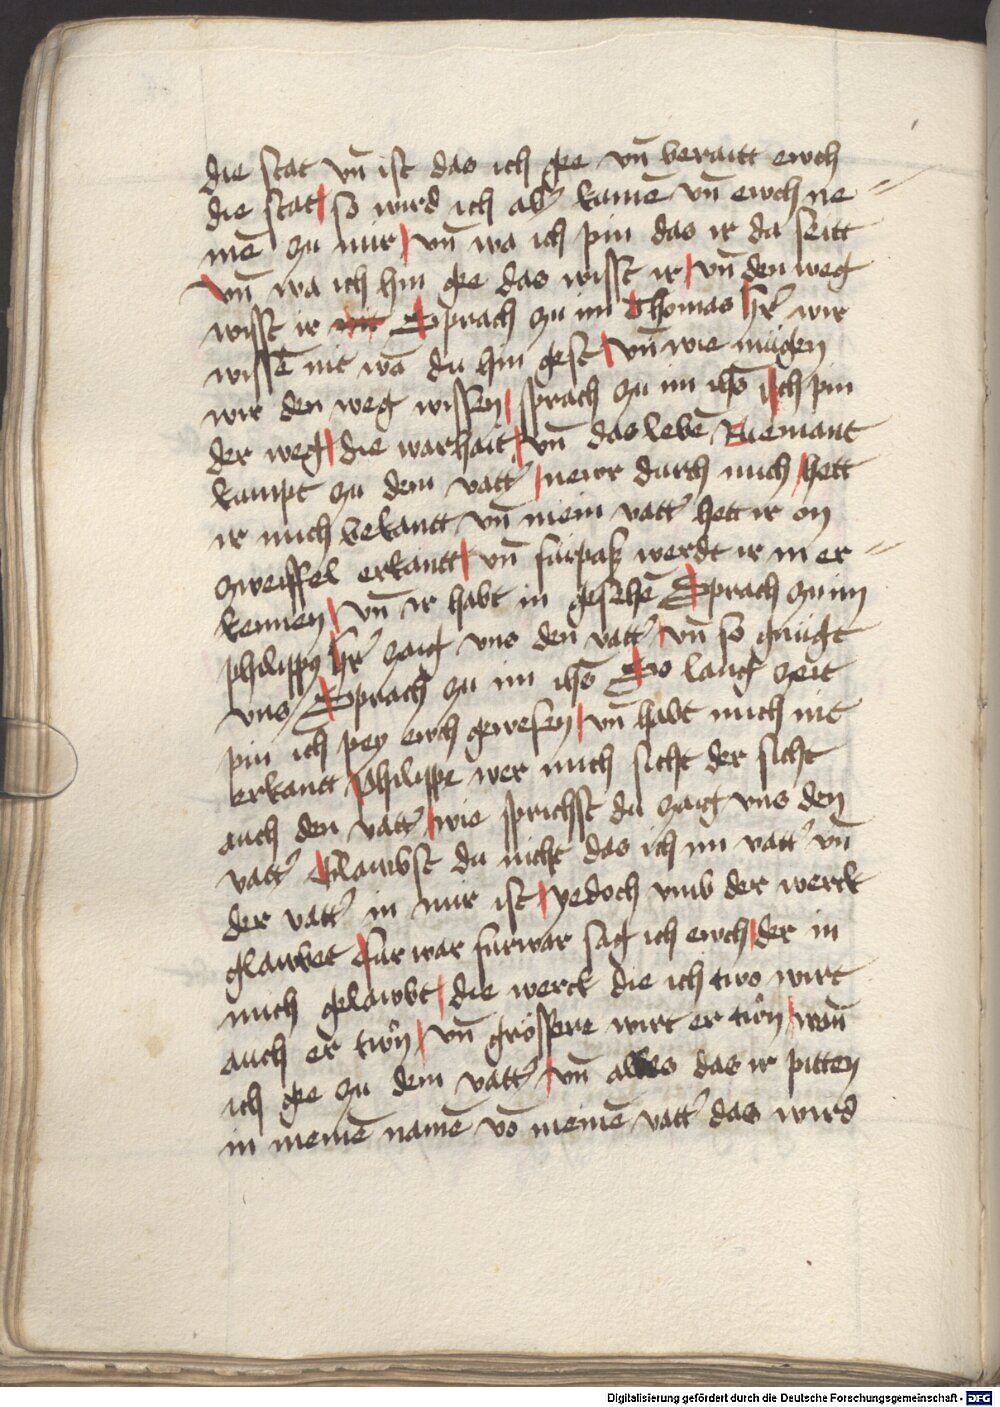 die stat vn̄ ist das ich ge vn̄ beraitt ewch
die stat so wird ich ab̾ kamē vn̄ ewch ne=
mē zu mir vn̄ wa ich pin das ir da seitt
vn̄ wa ich hin ge das wisst ir vn̄ den weg
wisst ir Sprach zu im Thomas hr̄ wir
wissē nit wa du hin gest vn̄ wie mügen
wir den weg wissen sprach zu im ihs̄ ich pin
der weg die warhait vn̄ das lebē Niemant
kumpt zu dem vatt̾ newr durch mich hett
ir mich bekantt vn̄ mein vatt̾ hett ir on
zweiffel erkantt vn̄ fürpaß werdt ir in er=
kennen vn̄ ir habt in gesehē Sprach zu im
philippus hr̄ zaig vns den vatt̾ vn̄ so gnügt
vns Sprach zu im ihs̄ So lang zeit
pin ich pey ewch gewesen vn̄ habt mich nit
erkantt Philippe wer mich sicht der sicht
auch den vatt̾ wie sprichst du zaig vns den
vatt̾ Glawbst du nicht das ich im vatt̾ vn̄
der vatt̾ in mir ist yedoch vmb der werck
glawbet fur war furwar sag ich ewch der in
mich gelawbt die werck die ich two wirt
auch er twn vn̄ grössere wirt er twn wan̄
ich ge zu dem vatt̾ vn̄ alles das ir pitten
in meinē namē vō meinē vatt̾ das wird
Digitalisierung gefördert durch die Deutsche Forschungsgemeinschaft - DFG